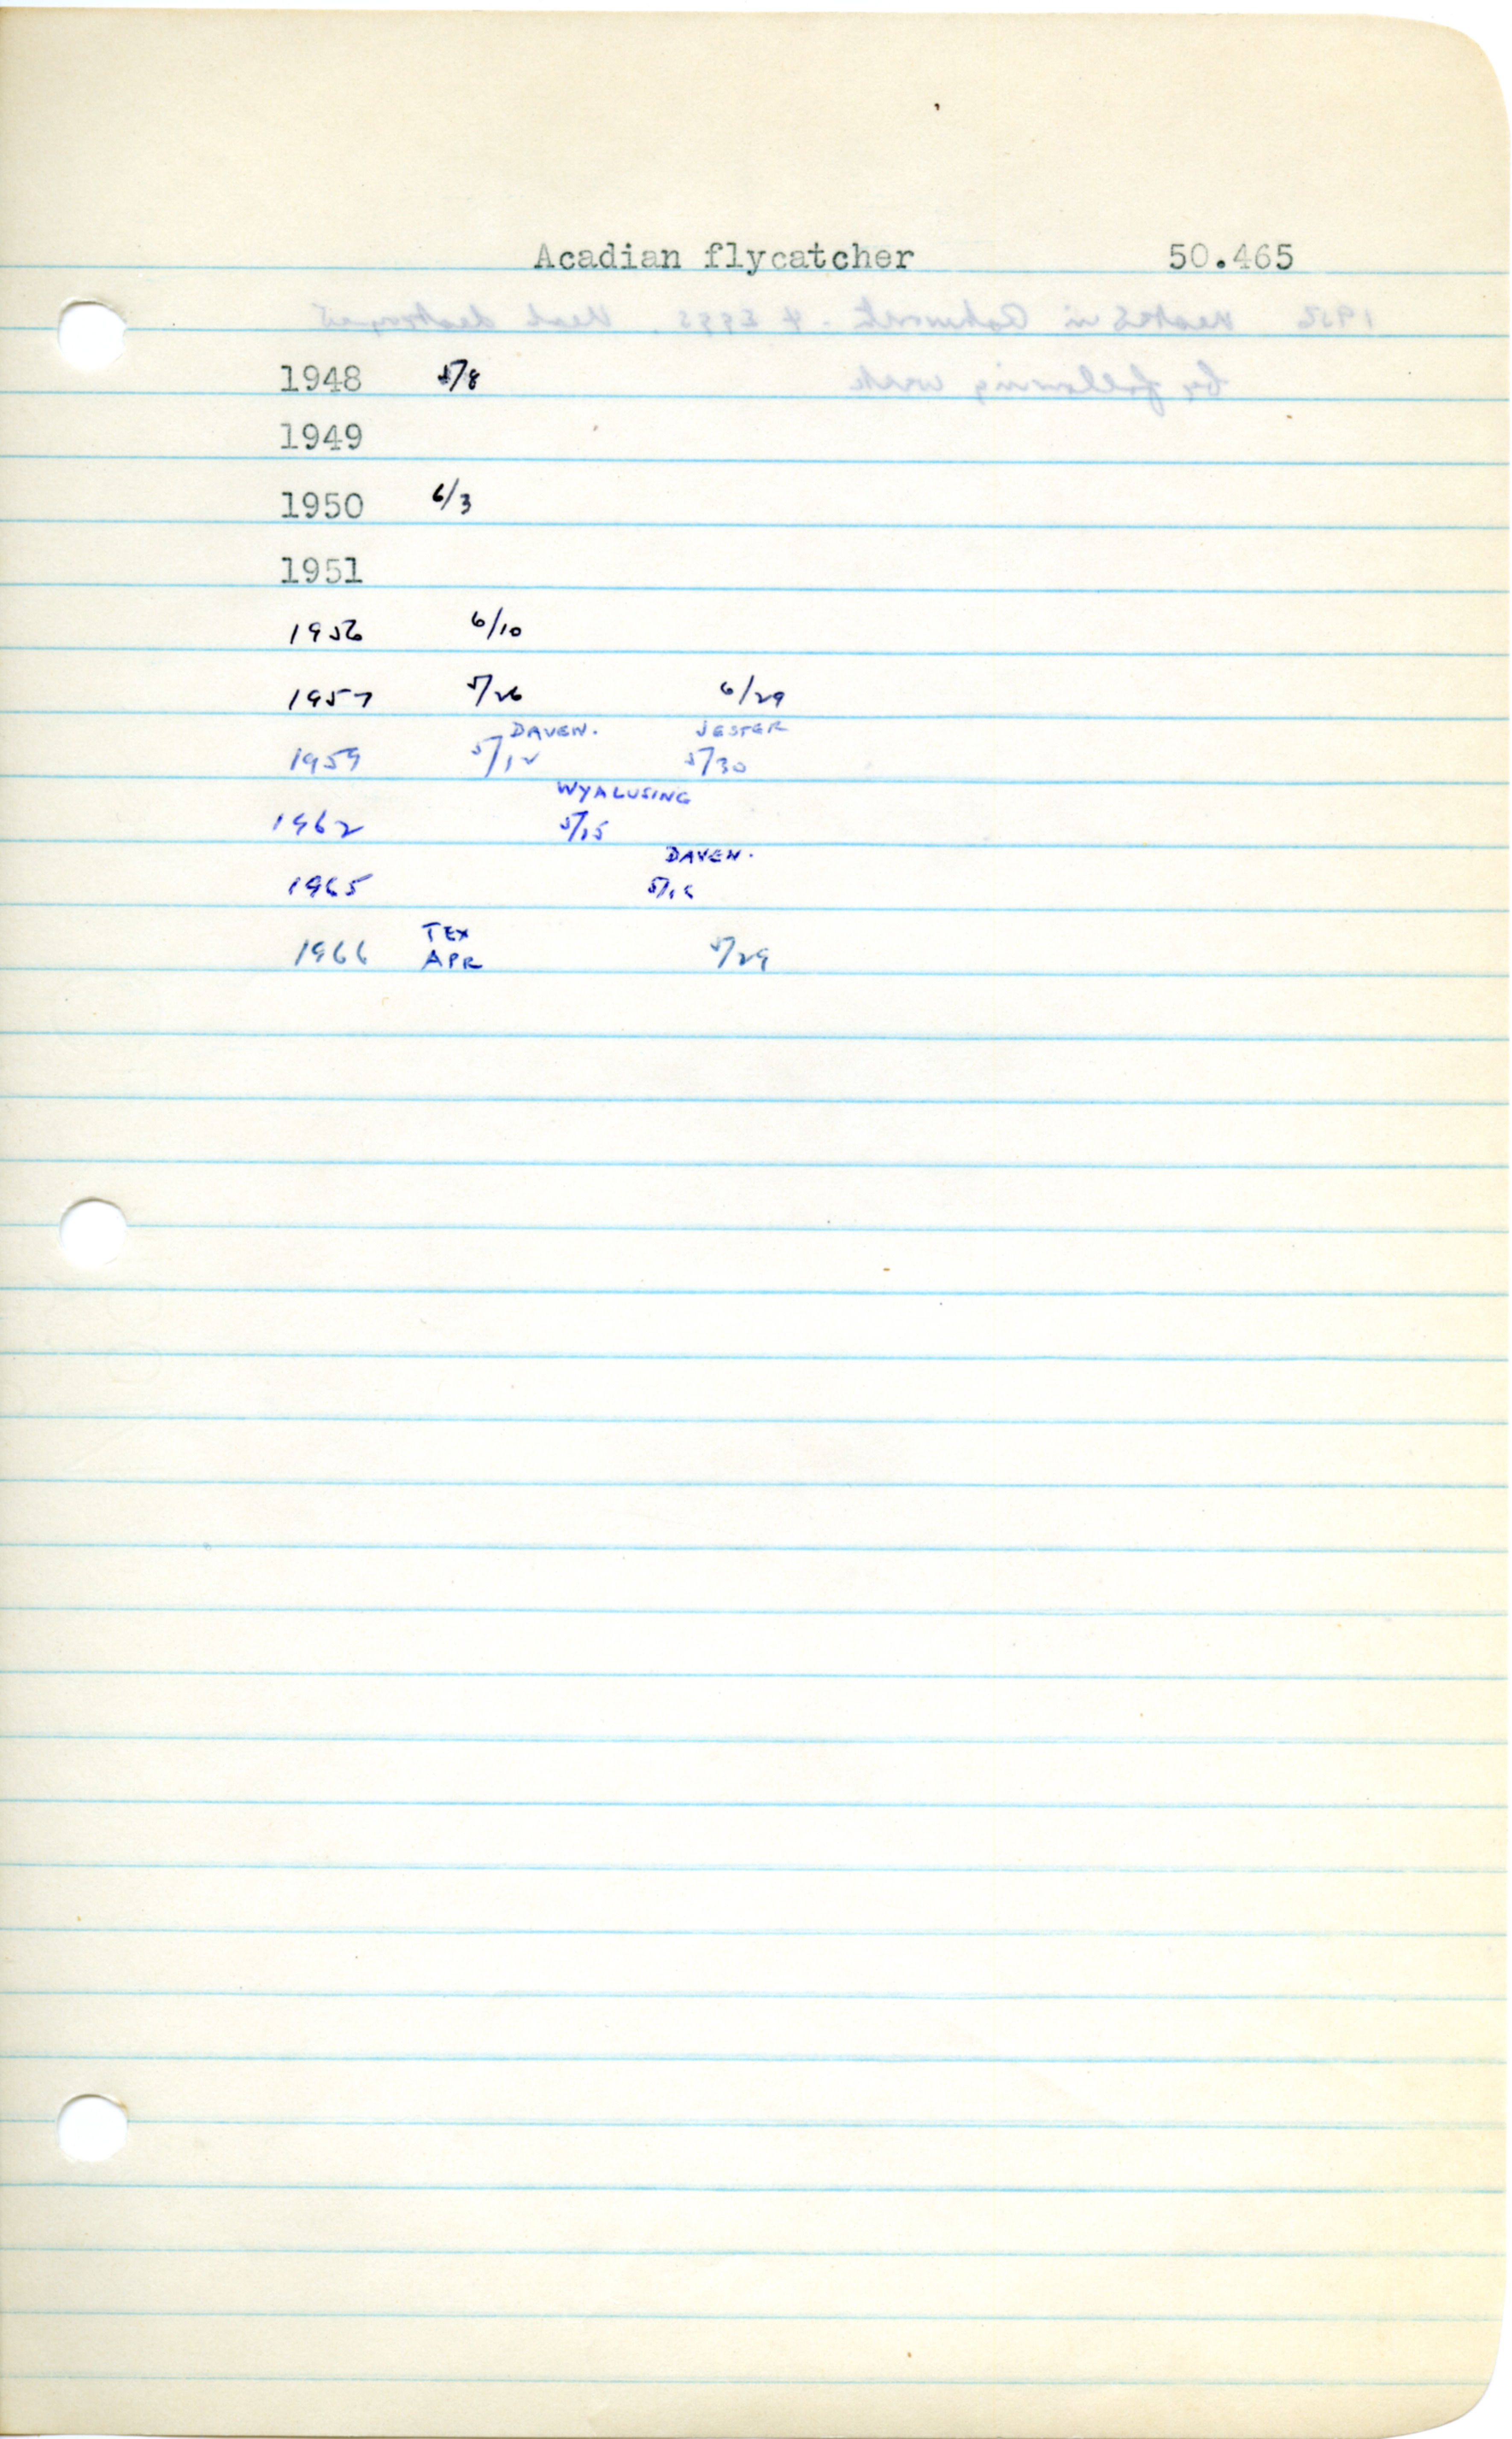 Acadian flycatcher 50.465
1948 5/8
1949
1950 6/3
1951
1956 6/10
1957 5/26 6/29
DAVEN. JESTER
1959 5/12 5/30
WYALUSING
1962 5/15
DAVEN.
1965
TEX
1966 APR 5/29